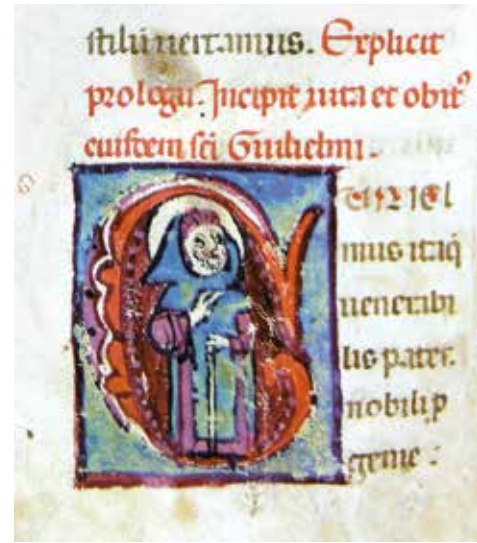 stilū uertamus. Explicit
prologu. Incipit uita et obit⁹
eiusdem sc̄i Guilielmi.
G
uiliel
mus itaq̄
uenerabi
lis pater.
nobili p
genie :